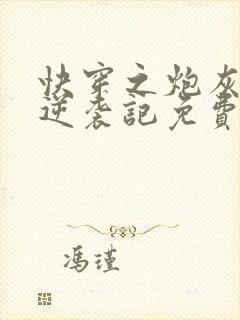 快穿之炮灰
逆袭記免費
馮瑾